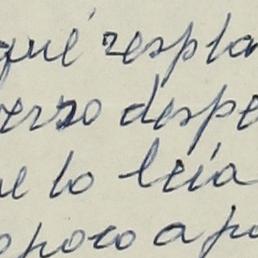 qué respla
erso despe
ue lo leía
o poco a po